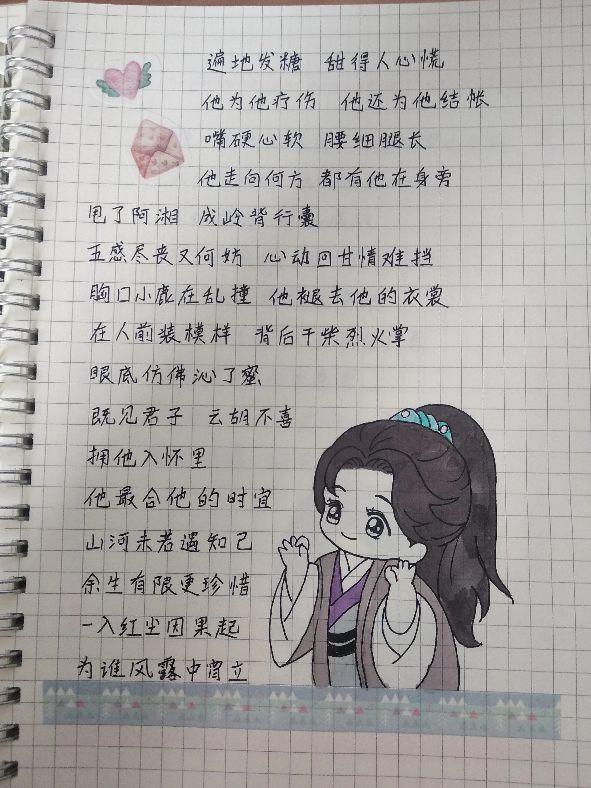 遍地发糖 甜得人心慌
他为他疗伤 他还为他结帐
嘴硬心软 腰细腿长
他走向何方 都有他在身旁
甩了阿湘 成岭背行囊
五感尽丧又何妨 心动回甘情难挡
胸口小鹿在乱撞 他褪去他的衣裳
在人前装模样 背后干柴烈火掌
眼底仿佛沁了蜜
既见君子 云胡不喜
拥他入怀里
他最合他的时宜
山河未若遇知己
余生有限更珍惜
一入红尘因果起
为谁风露中宵立